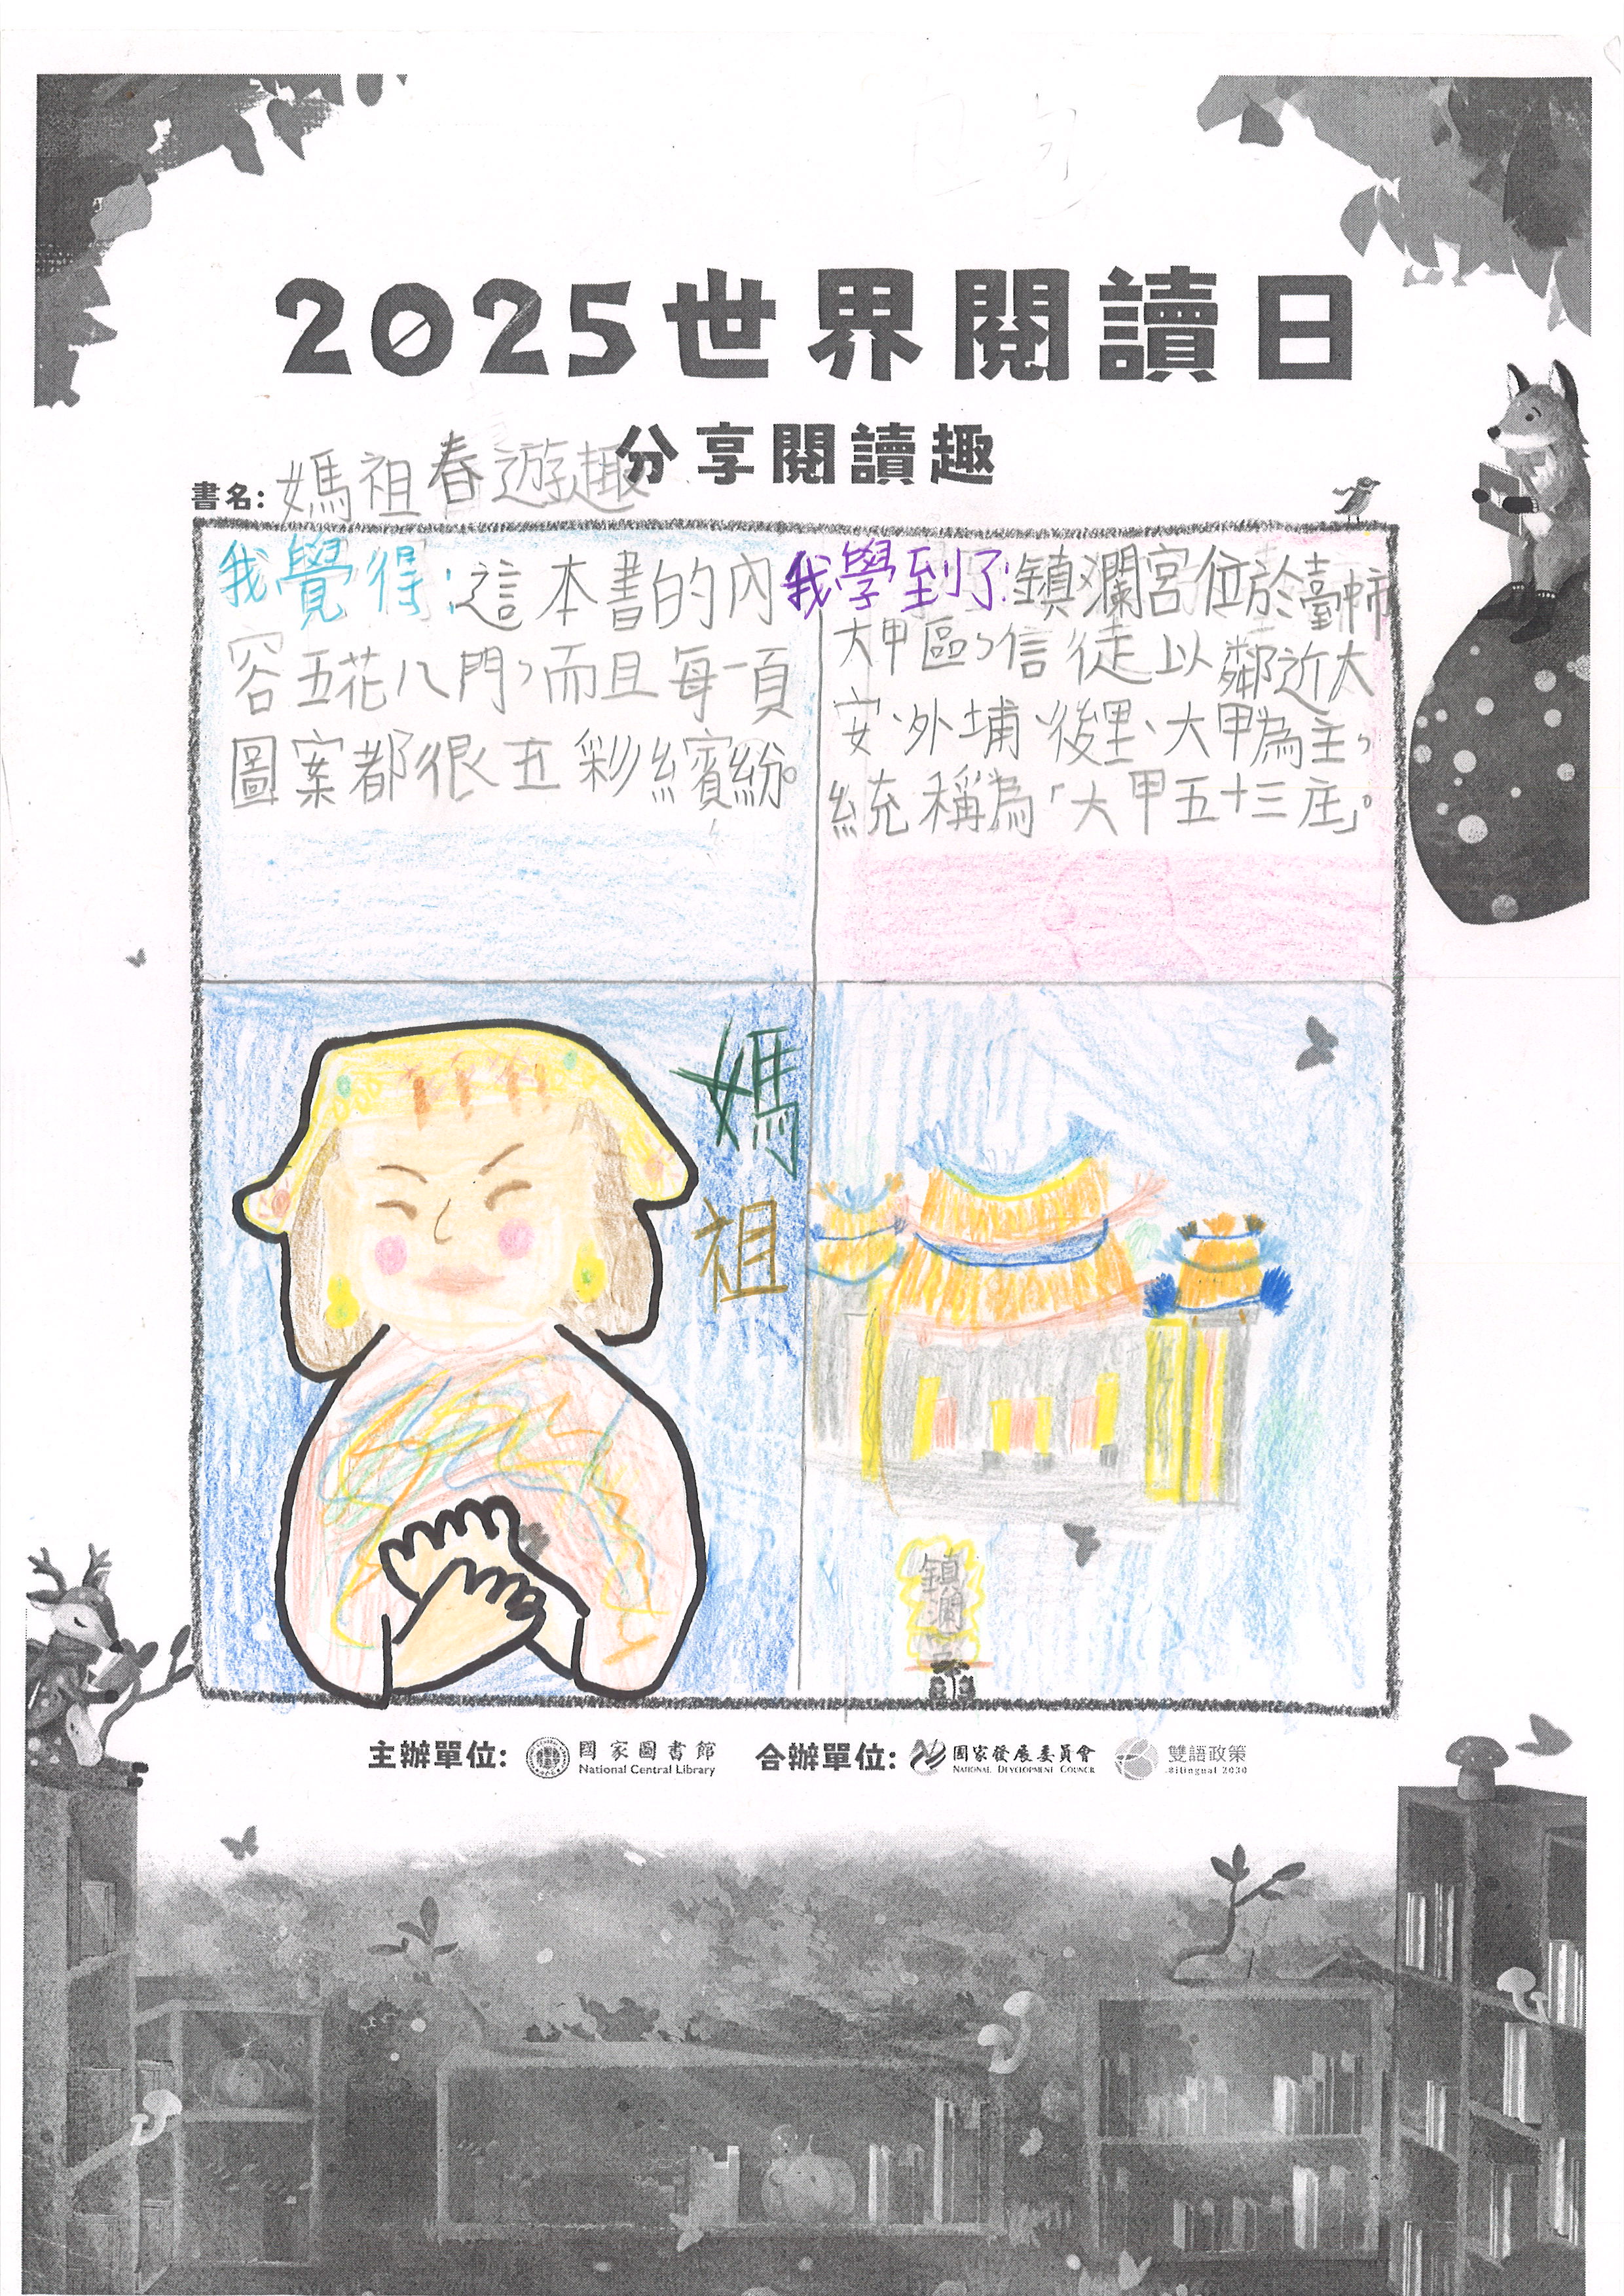 2025世界閱讀日
分享閱讀趣
書名: 媽祖春遊趣
我覺得:這本書的內
容五花八門,而且每一頁
圖案都很五彩繽紛。
我學到了:鎮瀾宮位於臺中市
大甲區,信徒以鄰近大
安、外埔、後里、大甲為主,
統稱為「大甲五十三庄」。
媽祖
鎮瀾宮
主辦單位: 國家圖書館 National Central Library 合辦單位: 國家發展委員會 National Development Council 雙語政策 Bilingual 2030